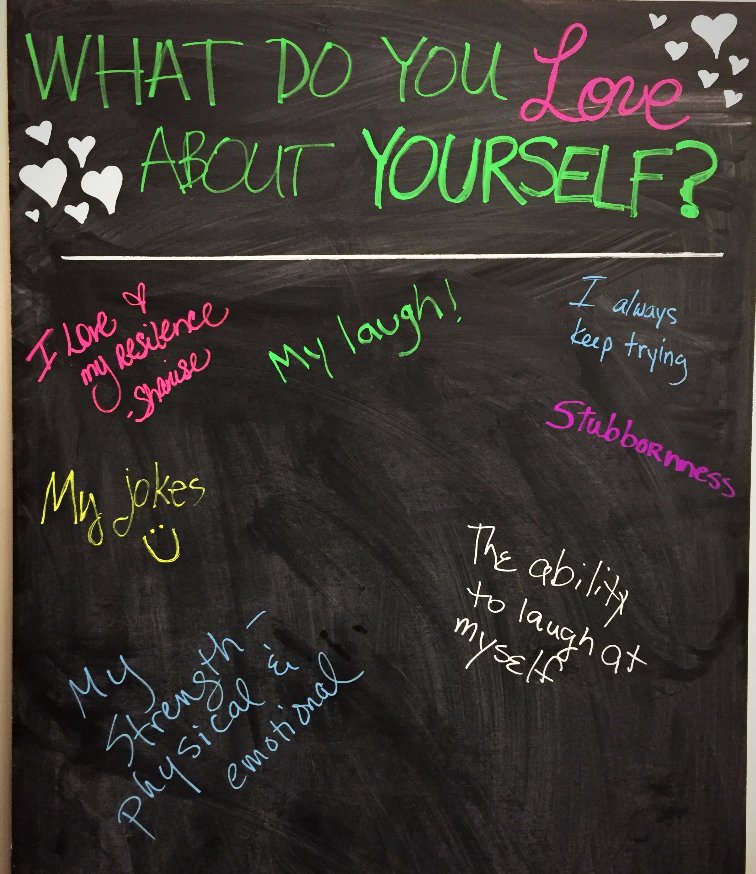 WHAT DO YOU Love
ABOUT YOURSELF?
I Love
my Resilence
- Sharise
My laugh!
I always
keep trying
Stubbornness
My jokes
The ability
to laugh at
myself
My
Strength -
physical &
emotional